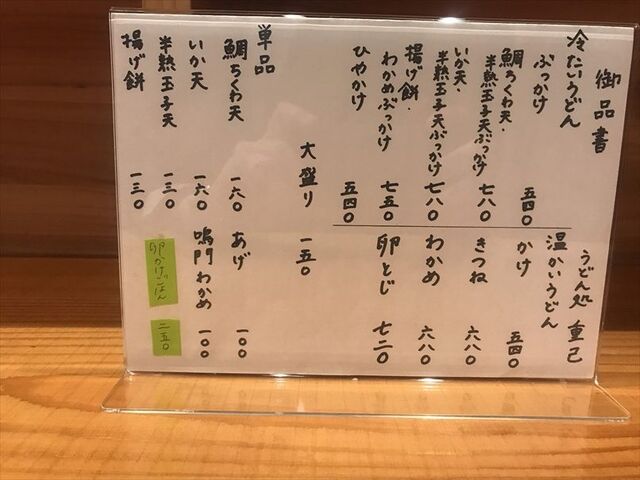 御品書
うどん処 重己
冷たいうどん
ぶっかけ 五四〇
鯛ちくわ天・
半熟玉子天ぶっかけ 七八〇
いか天・
半熟玉子天ぶっかけ 七八〇
揚げ餅・
わかめぶっかけ 七五〇
ひやかけ 五四〇
温かいうどん
かけ 五四〇
きつね 六八〇
わかめ 六八〇
卵とじ 七二〇
大盛り 一五〇
単品
鯛ちくわ天 一六〇
いか天 一六〇
半熟玉子天 一三〇
揚げ餅 一三〇
あげ 一〇〇
鳴門わかめ 一〇〇
卵かけごはん 二五〇